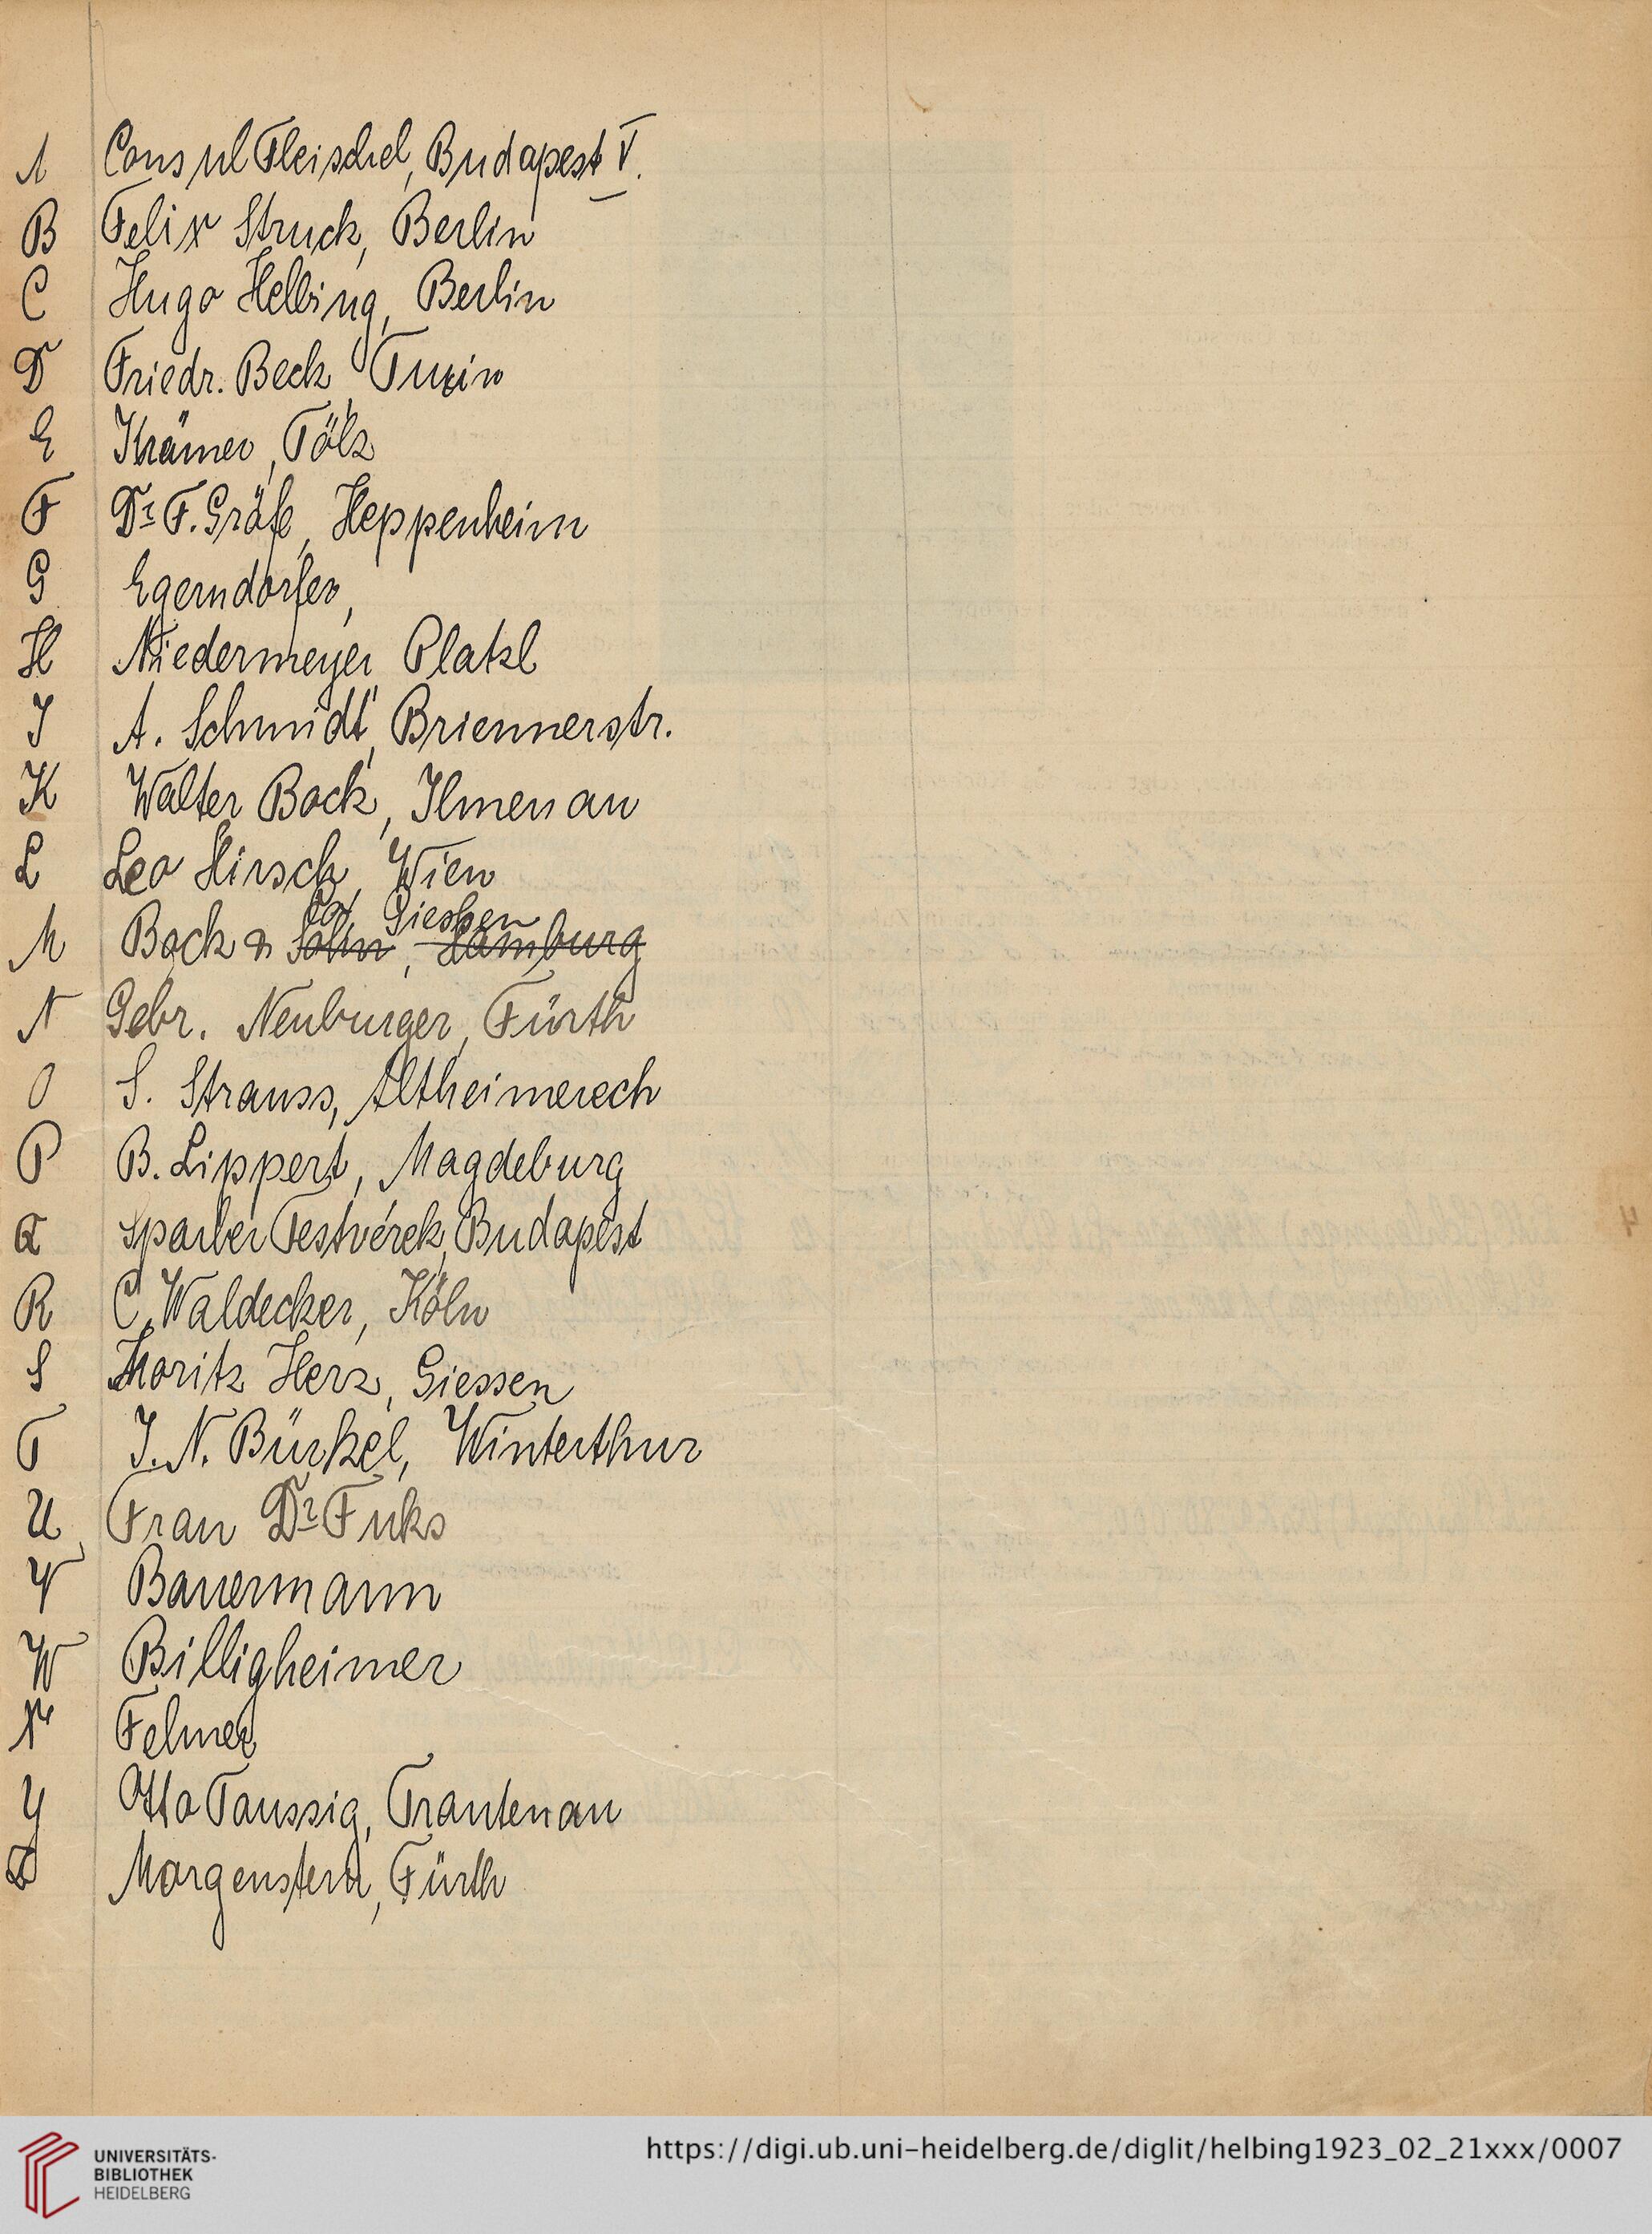 A Consul Fleischel, Budapest V.
B Felix Struck, Berlin
C Hugo Helbing, Berlin
D Friedr. Beck, Turin
E Krämer, Tölz
F Dr. F. Gräfe, Heppenheim
G Egerndorfer,
H Niedermeyer, Platzl
J A. Schmidt, Briennerstr.
K Walter Bock, Ilmenau
L Leo Hirsch, Wien
Co, Giessen
M Bock & Sohn, Hamburg
N Gebr. Neuburger, Fürth
O S. Strauss, Altheimereck
P B. Lippert, Magdeburg
Q Testvérek, Budapest
R C. Waldecker, Köln
S Moritz Herz, Giessen
T J. N. Bürkel, Winterthur
U Frau Dr. Fuks
V Bauermann
W Billigheimer
X Felmer
Y Otto Taussig, Trautenau
Z Morgenstern, Fürth
UNIVERSITÄTS-
BIBLIOTHEK
HEIDELBERG
https://digi.ub.uni-heidelberg.de/diglit/helbing1923_02_21xxx/0007